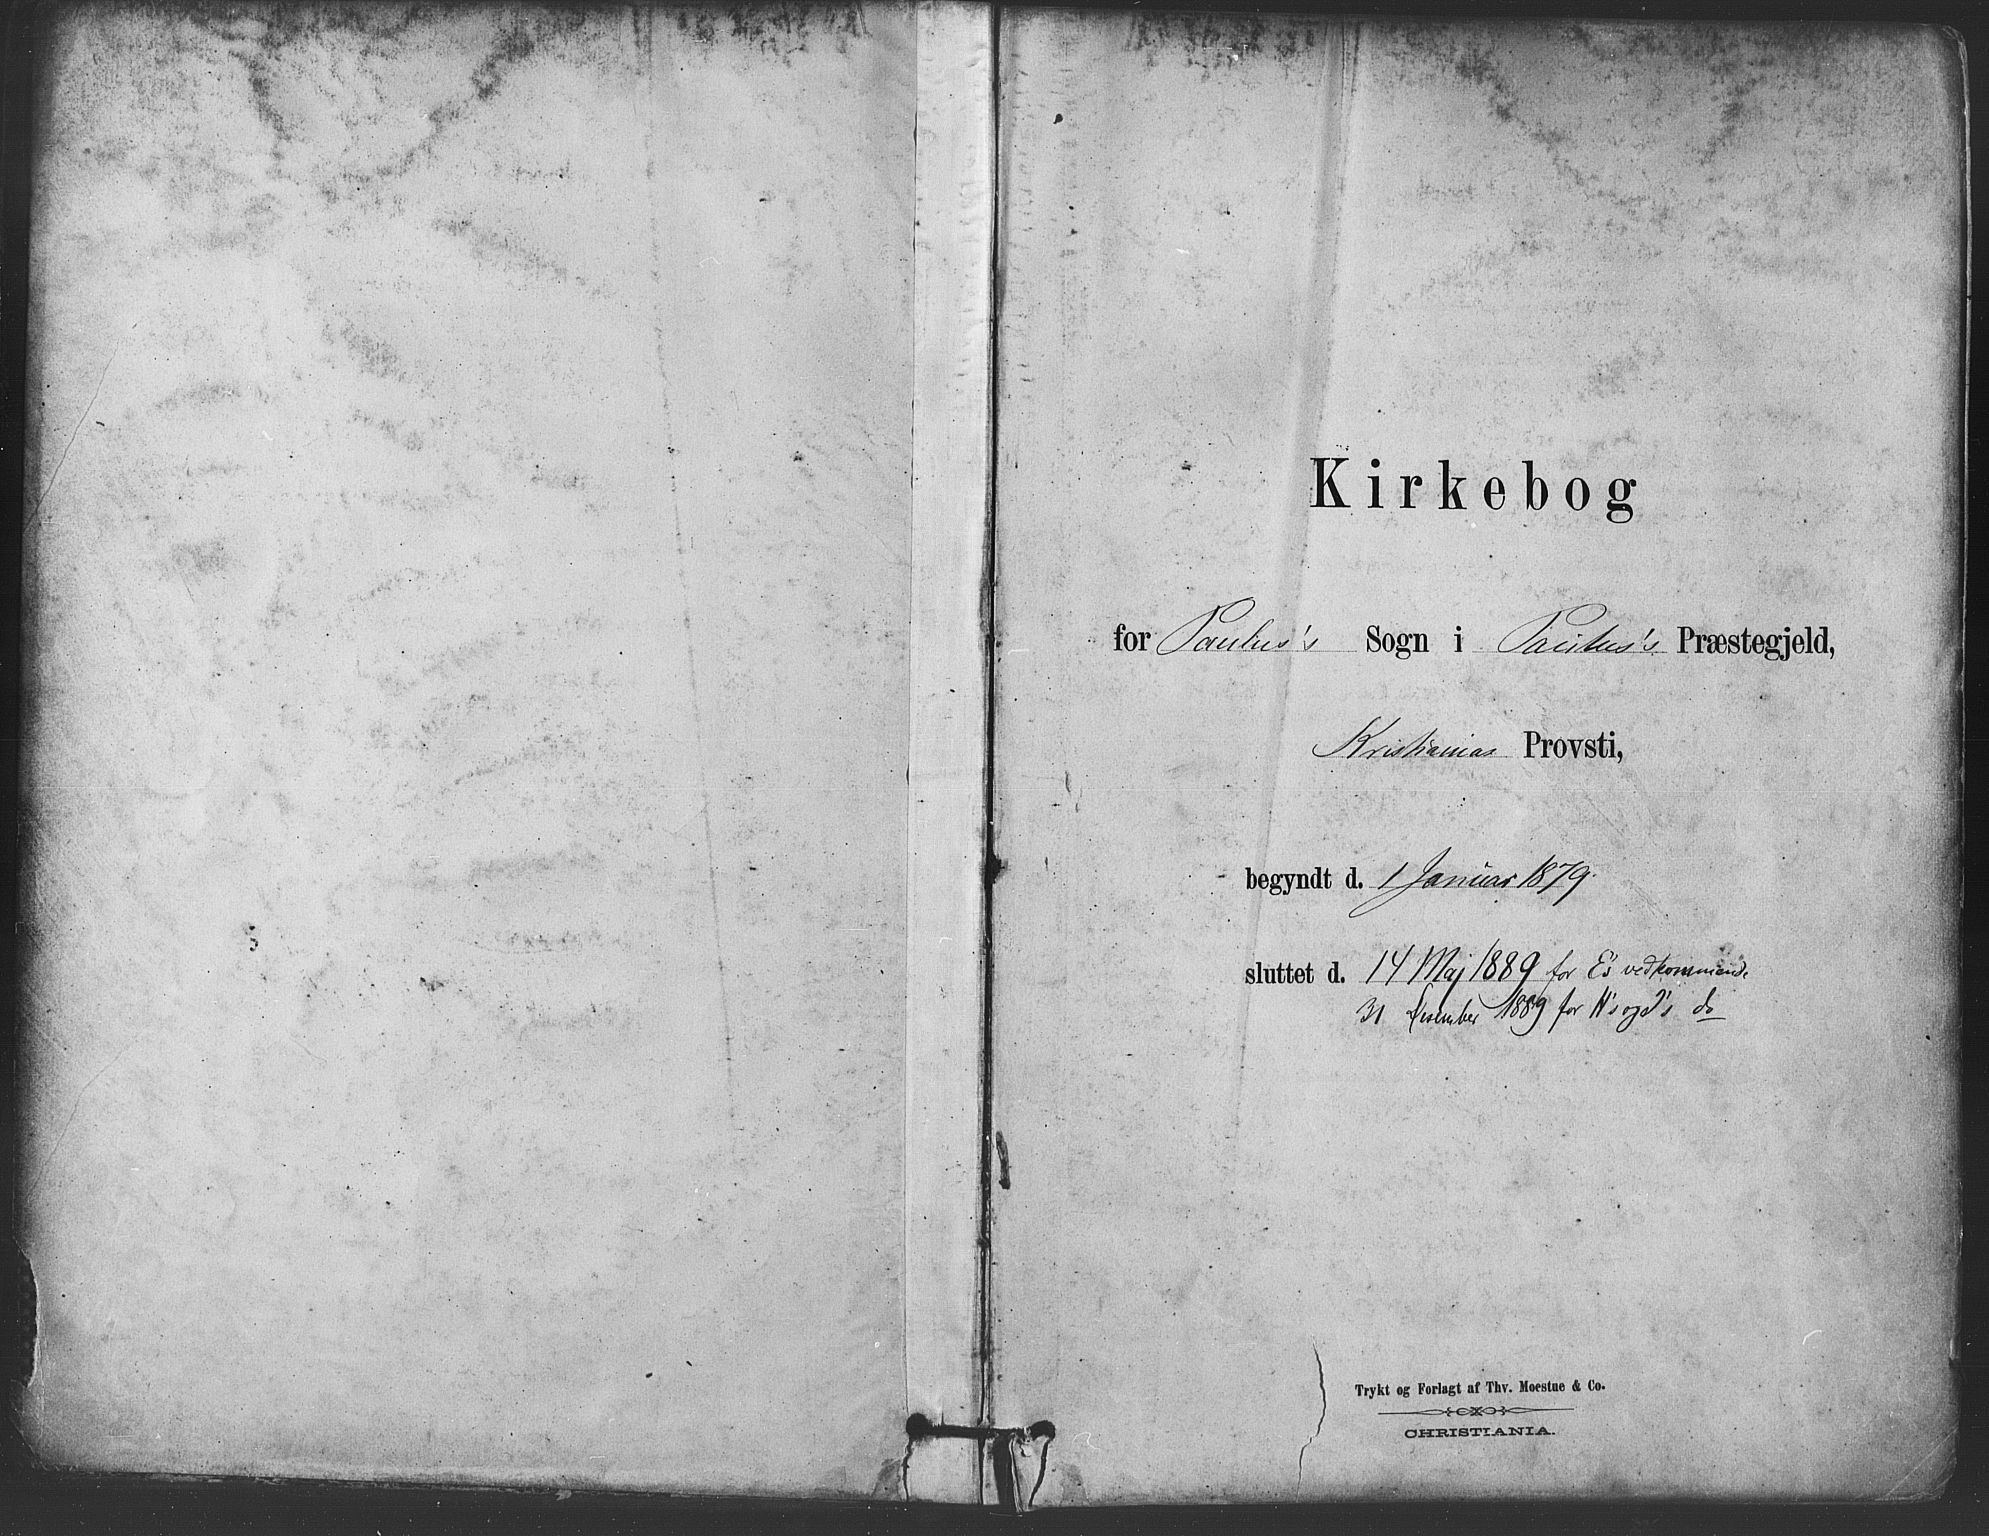 Kirkebog
for Paulus's Sogn i Paulus's Præstegjeld,
Kristianias Provsti,
begyndt d. 1 Januar 1879.
sluttet d. 14 Maj 1889 for E's vedkommende
31 Desember 1889 for H's og I's do
Trykt og Forlagt af Thv. Moestue & Co.
CHRISTIANIA.